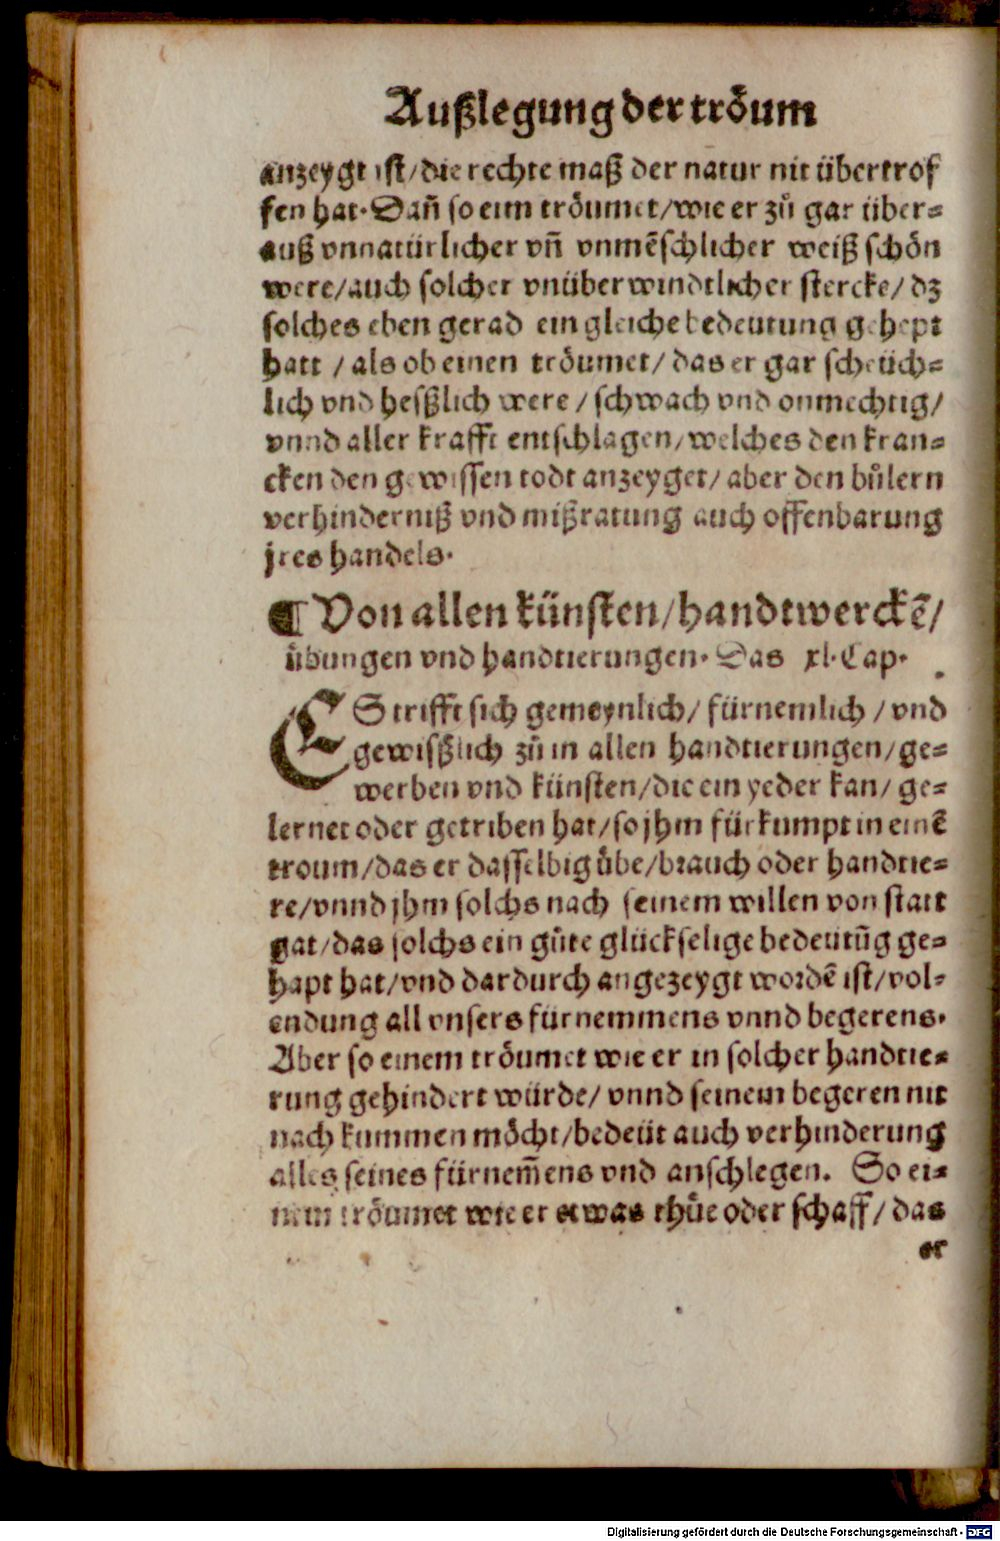 Außlegung der trőum
anzeygt ist/die rechte maß der natur nit übertrof
fen hat. Dañ so eim trőumet/wie er zů gar über⸗
auß vnnatürlicher vñ vnmẽschlicher weiß schőn
were/auch solcher vnüberwindtlicher stercke/dz
solches eben gerad ein gleiche bedeutung gehept
hatt / als ob einen trőumet/das er gar scheüch⸗
lich vnd heßlich were / schwach vnd onmechtig/
vnnd aller krafft entschlagen/welches den kran⸗
cken den gewissen todt anzeyget/aber den bůlern
verhinderniß vnd mißratung auch offenbarung
jres handels.
¶ Von allen künsten/handtwerckẽ/
übungen vnd handtierungen. Das xl. Cap.
ES trifft sich gemeynlich/ fürnemlich / vnd
gewißlich zů in allen handtierungen/ge⸗
werben vnd künsten/die ein yeder kan/ ge⸗
lernet oder getriben hat/so jhm fürkumpt in einẽ
troum/das er dasselbig übe/brauch oder handtie⸗
re/vnnd jhm solchs nach seinem willen von statt
gat/das solchs ein gůte glückselige bedeutũg ge⸗
hapt hat/vnd dardurch angezeygt wordẽ ist/vol⸗
endung all vnsers fürnemmens vnnd begerens.
Aber so einem trőumet wie er in solcher handtie⸗
rung gehindert würde/ vnnd seinem begeren nit
nach kummen mőcht/bedeüt auch verhinderung
alles seines fürnem̃ens vnd anschlegen. So ei⸗
nem trőumet wie er etwas thůe oder schaff/ das
er
Digitalisierung gefördert durch die Deutsche Forschungsgemeinschaft - DFG